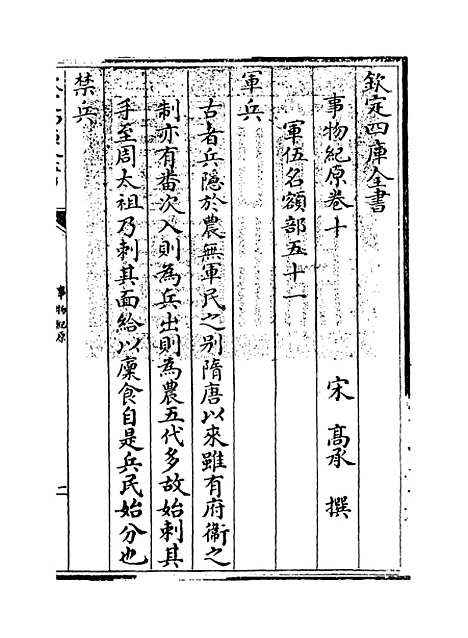 欽定四庫全書
事物紀原卷十
宋 高承 撰
軍伍名額部五十一
軍兵
古者兵隱於農無軍民之別隋唐以來雖有府衞之
制亦有畨次入則為兵出則為農五代多故始刺其
手至周太祖乃刺其面給以廩食自是兵民始分也
禁兵
事物紀原
二